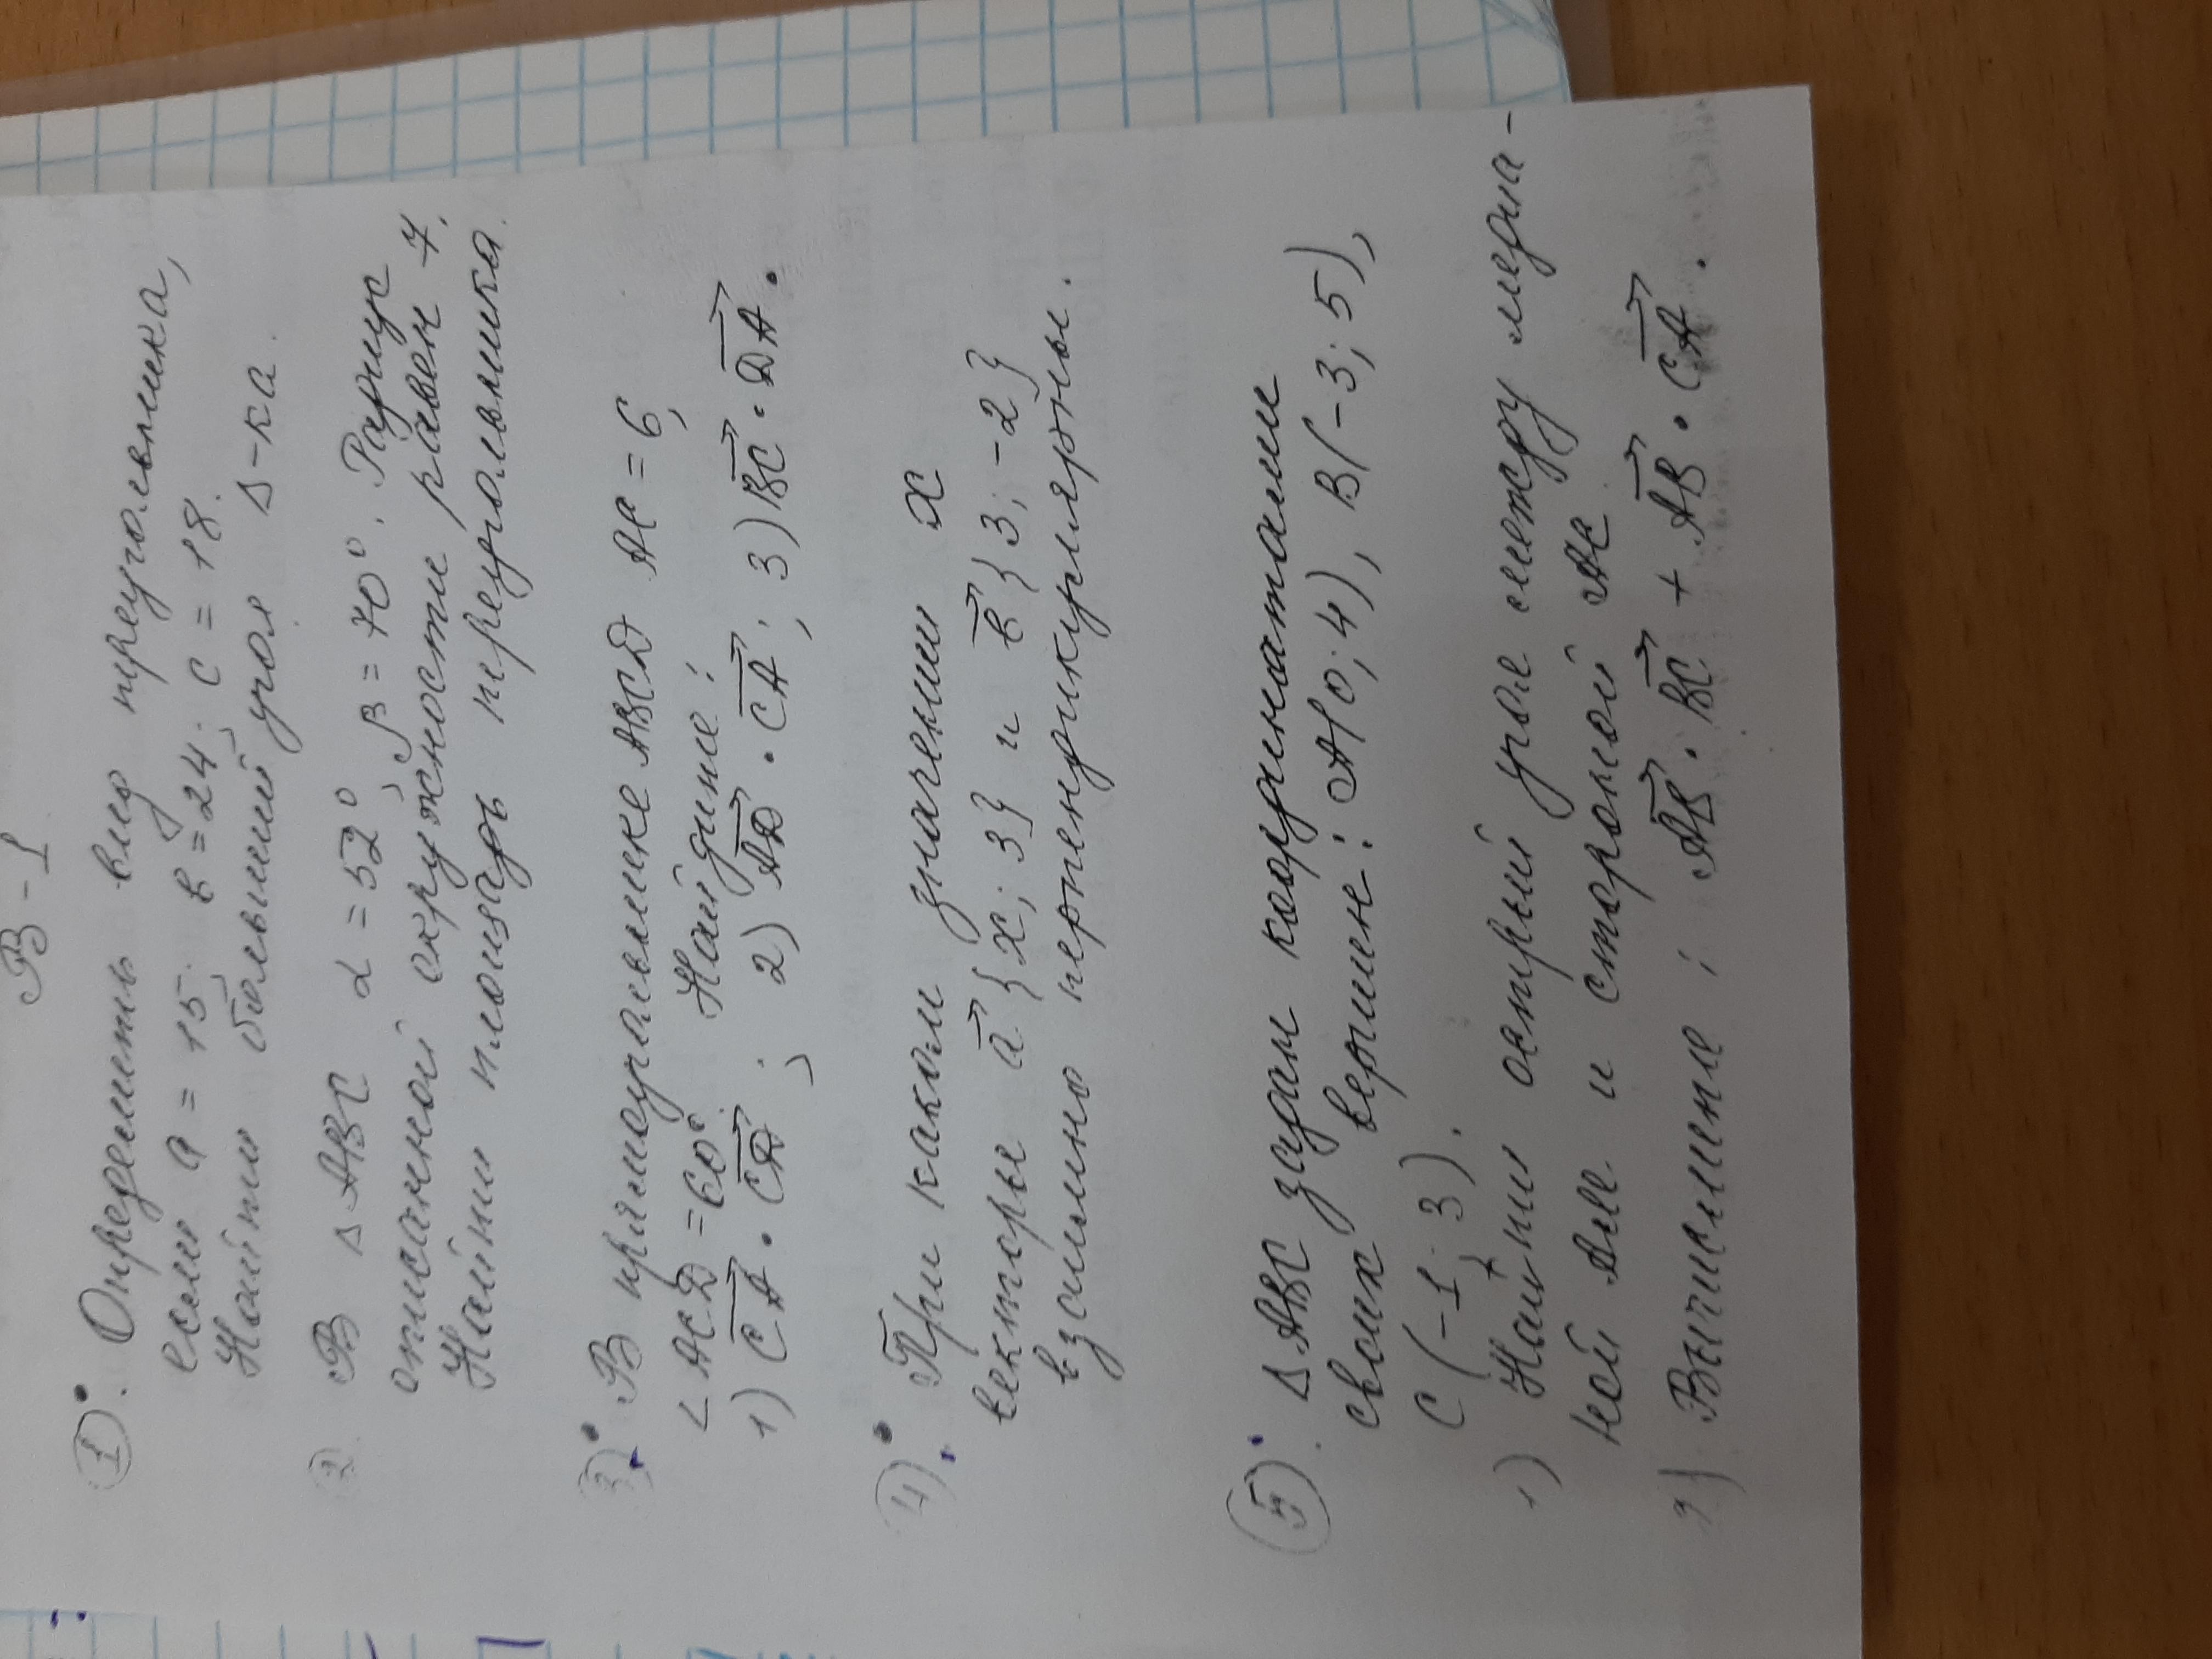 В - 1
1). Определить вид треугольника,
если a = 15; в = 24; c = 18.
Найти больший угол Δ-ка.
2) В ΔABC α = 52°; β = 70°. Радиус
описанной окружности равен 7.
Найти площадь треугольника.
3). В прямоугольнике ABCD AC = 6,
< ACD = 60°. Найдите:
1) CA · CD ; 2) AD · CA ; 3) BC · DA .
4). При каком значении x
векторы a {x; 3} и в {3; -2}
взаимно перпендикулярны.
5). ΔABC задан координатами
своих вершин: A(0; 4), B(-3; 5),
C(-1; 3).
1) Найти острый угол между медиа-
ной AM и стороной AC
2) Вычислите ; AB · BC + AB · CA .